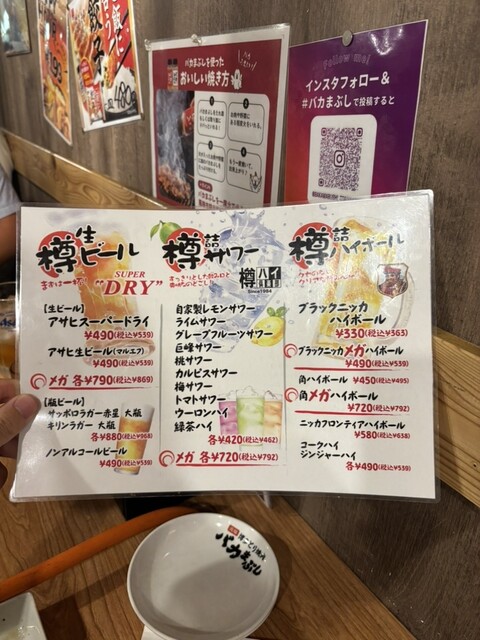 ご飯に合う
餃子
バカまぶしを使った
おいしい焼き方
Follow me!
インスタフォロー&
#バカまぶしで投稿すると
樽生ビール
まずは一杯
SUPER
"DRY"
【生ビール】
アサヒスーパードライ
¥490(税込¥539)
アサヒ生ビール(マルエフ)
¥490(税込¥539)
メガ 各¥790(税込¥869)
【瓶ビール】
サッポロラガー赤星 大瓶
キリンラガー 大瓶
各¥880(税込¥968)
ノンアルコールビール
¥490(税込¥539)
樽詰サワー
すっきりとした飲み口と
樽ハイ
倶楽部
Since1984
自家製レモンサワー
ライムサワー
グレープフルーツサワー
巨峰サワー
桃サワー
カルピスサワー
梅サワー
トマトサワー
ウーロンハイ
緑茶ハイ
各¥420(税込¥462)
メガ 各¥720(税込¥792)
樽詰ハイボール
ブラックニッカ
ハイボール
¥330(税込¥363)
ブラックニッカメガハイボール
¥490(税込¥539)
角ハイボール ¥450(税込¥495)
角メガハイボール
¥720(税込¥792)
ニッカフロンティアハイボール
¥580(税込¥638)
コークハイ
ジンジャーハイ
各¥490(税込¥539)
バカまぶし